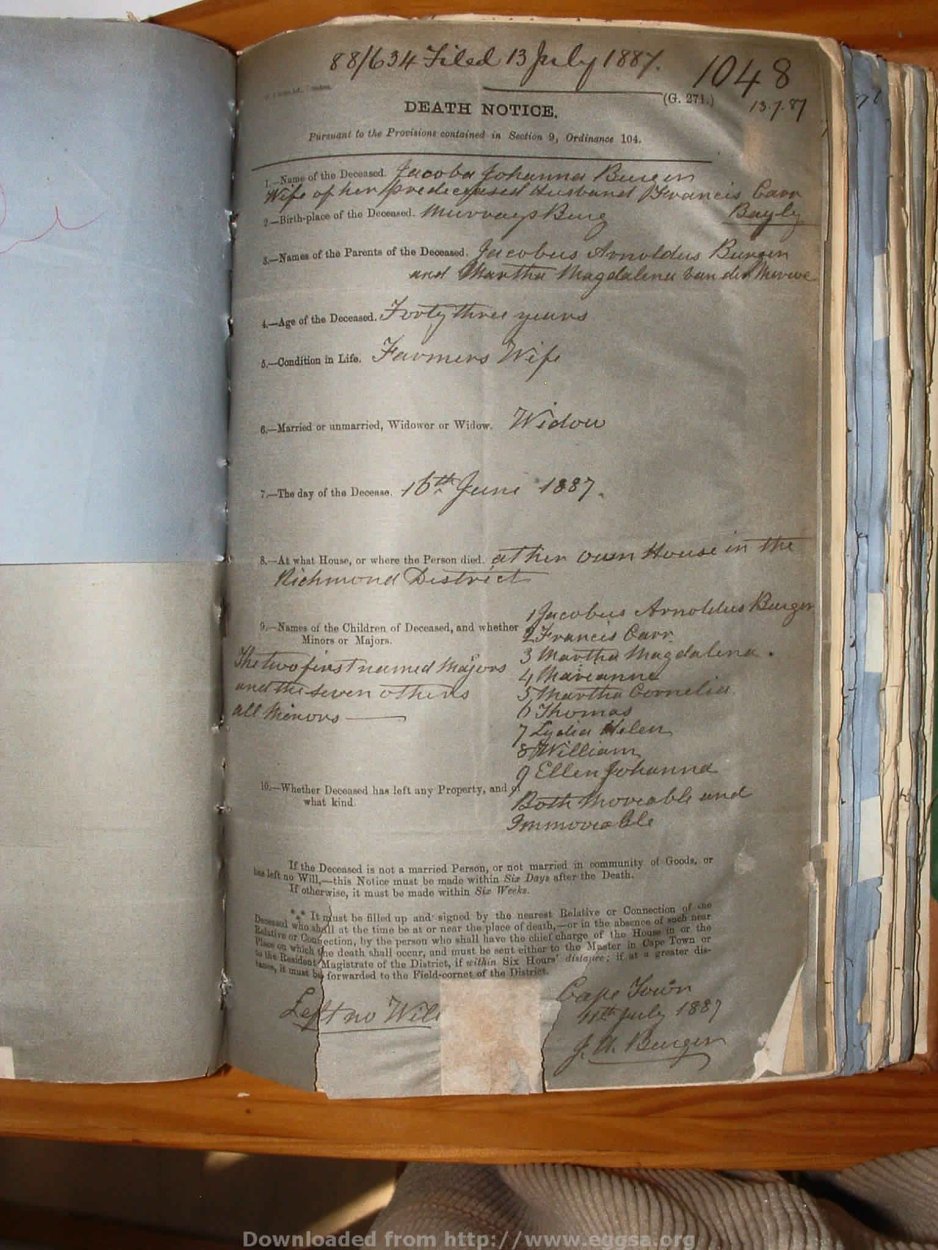 88/634 Filed 13 July 1887.
1048
(G. 271.)
13.7.87
DEATH NOTICE,
Pursuant to the Provisions contained in Section 9, Ordinance 104.
1.—Name of the Deceased. Jacoba Johanna Burger
Wife of her predeceased Husband Francis Carr
Bayly
2.—Birth-place of the Deceased. Murraysburg
3.—Names of the Parents of the Deceased. Jacobus Arnoldus Burger
and Martha Magdalena van der Merwe
4.—Age of the Deceased. Forty three years
5.—Condition in Life. Farmers Wife
6.—Married or unmarried, Widower or Widow. Widow
7.—The day of the Decease. 16th June 1887.
8.—At what House, or where the Person died. at her own House in the
Richmond District
9.—Names of the Children of Deceased, and whether
Minors or Majors.
The two first named Majors
and the seven others
all Minors
1 Jacobus Arnoldus Burger
2 Francis Carr
3 Martha Magdalena.
4 Marianne
5 Martha Cornelia
6 Thomas
7 Lydia Helen
8 William
9 Ellen Johanna
10.—Whether Deceased has left any Property, and of
what kind
Both Moveable and
Immoveable
If the Deceased is not a married Person, or not married in community of Goods, or
has left no Will,—this Notice must be made within Six Days after the Death.
If otherwise, it must be made within Six Weeks.
*** It must be filled up and signed by the nearest Relative or Connection of the
Deceased who shall at the time be at or near the place of death,—or in the absence of such near
Relative or Connection, by the person who shall have the chief charge of the House in or the
Place on which the death shall occur, and must be sent either to the Master in Cape Town or
to the Resident Magistrate of the District, if within Six Hours' distance; if at a greater dis-
tance, it must be forwarded to the Field-cornet of the District.
Left no Will
Cape Town
11th July 1887
J. A. Burger
Downloaded from http://www.eggsa.org